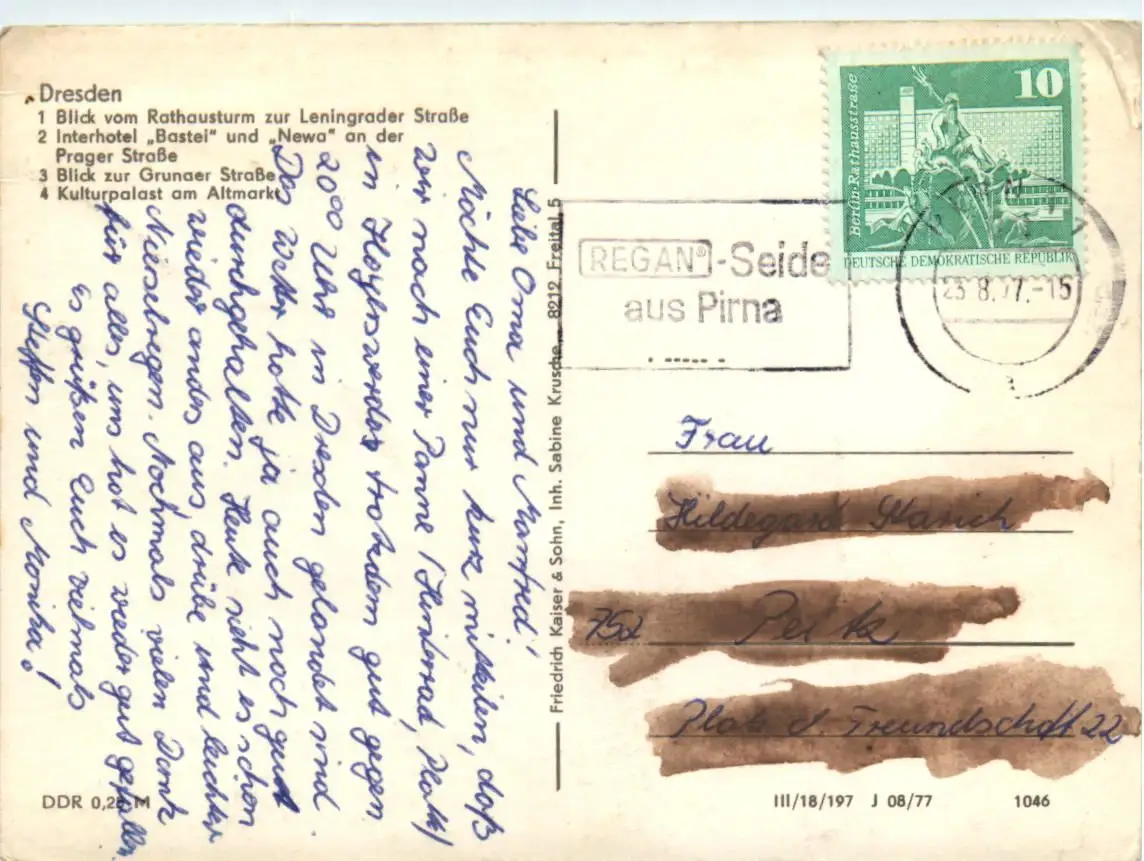 Dresden
1 Blick vom Rathausturm zur Leningrader Straße
2 Interhotel „Bastei“ und „Newa“ an der
Prager Straße
3 Blick zur Grunaer Straße
4 Kulturpalast am Altmarkt
Liebe Oma und Manfred!
Möchte Euch nur kurz mitteilen, daß
wir nach einer Panne (Hinterrad, Platt)
in Hoyerswerda trotzdem gut gegen
20⁰⁰ Uhr in Dresden gelandet sind.
Das Wetter hatte ja auch noch gut
durchgehalten. Heute sieht es schon
wieder anders aus, drübe und leichter
Nieselregen. Nochmals vielen Dank
für alles, uns hat es wieder gut gefallen.
Es grüßen Euch vielmals
Steffen und Monika!
DDR 0,25 M
Friedrich Kaiser & Sohn, Inh. Sabine Krusche, 8212 Freital 5
REGAN®-Seide
aus Pirna
Berlin-Rathausstraße
10
DEUTSCHE DEMOKRATISCHE REPUBLIK
23.8.77.-15
Frau
Hildegard
752 Peitz
Platz d. Freundschaft 22
III/18/197 J 08/77 1046